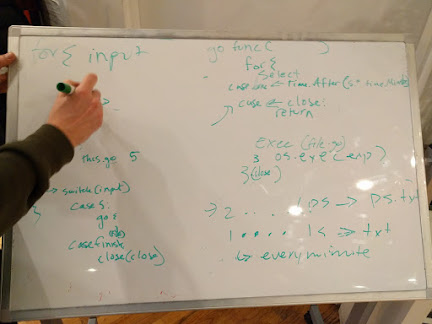 for { input
this.go 5
→ switch(input)
}
case s:
go {
case finish:
close(close)
go func( )
for {
select
case ← time.After(60 * time.Minute
case ← close:
return
exec (file.go)
3 os.exe(cmp)
}(close)
→ 2 .... ps → ps.txt
1 ..... ls ⇒ txt
↳ every minute